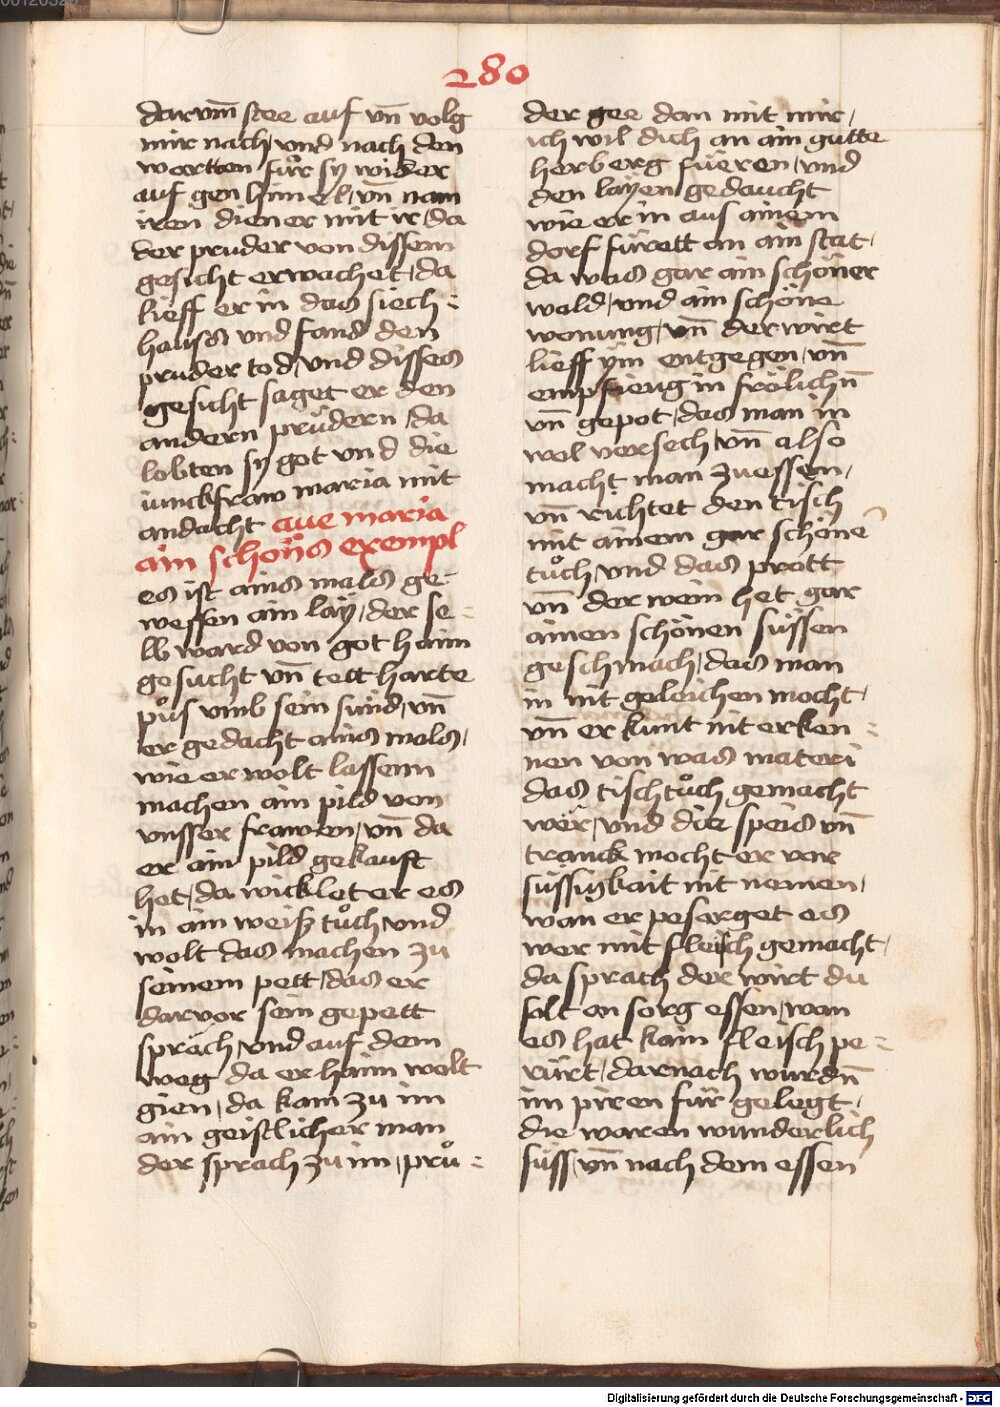 280
darvm̄ stee auf vn̄ volg
mir nach / vnd nach den
wortten für sy wider
auf gen himel / vn̄ nam
iren diener mit ir / da
der pruder von dissem
gesicht erwachet / da
lieff er in das siech :
hauss vnd fand den
pruder tod / vnd disses
gesicht saget er den
andern prüdern / da
lobten sy got vnd die
iunckfraw maria mit
andacht aue maria
ain schöns exempl
es ist ains mals ge-
wessen ain lay / der se :
lb ward von got haim
gesucht vn̄ tett harte
půs vmb sein sünd / vn̄
er gedacht ains mals /
wie er wolt lassenn
machen ain pild von
vnsser frawen / vn̄ da
er ain pild gekauft
het / da wicklet er es
in ain weiß tůch / vnd
wolt das machen zu
seinem pett / das er
darvor sein gepett
spräch / vnd auf dem
weg da er haim wolt
gien / da kam zu im
ain geistlicher man
der sprach zu im / prů :
der gee dan mit mir /
ich wil dich an ain gutte
herberg füeren / vnd
den layen gedaucht
wie er in aus ainem
dorf fürett an ain stat /
da was gar ain schöner
wald / vnd ain schöne
wonung / vn̄ der wirt
lieff ym entgegen / vn̄
empfieng in frölichn̄
vn̄ gepot / das man in
wol versech / vn̄ also
macht man zu essen /
vn̄ richtet den tisch
mit ainem gar schöne
tůch / vnd das prott
vn̄ der wein het gar
ainen schönen süssen
geschmach / das man
in nit geleichen mocht /
vn̄ er kunt nit erken :
nen von was materi
das tischtůch gemacht
wer / vnd die speis vn̄
tranck mocht er vor
süssigkait nit nemen /
wan er pesorget es
wer mit fleisch gemacht /
da sprach der wirt du
solt on sorg essen / wan
es hat kain fleisch pe :
rürt / darnach wurdn̄
im piren für gelegt /
die waren wunderlich
süss / vn̄ nach dem essen
Digitalisierung gefördert durch die Deutsche Forschungsgemeinschaft - DFG